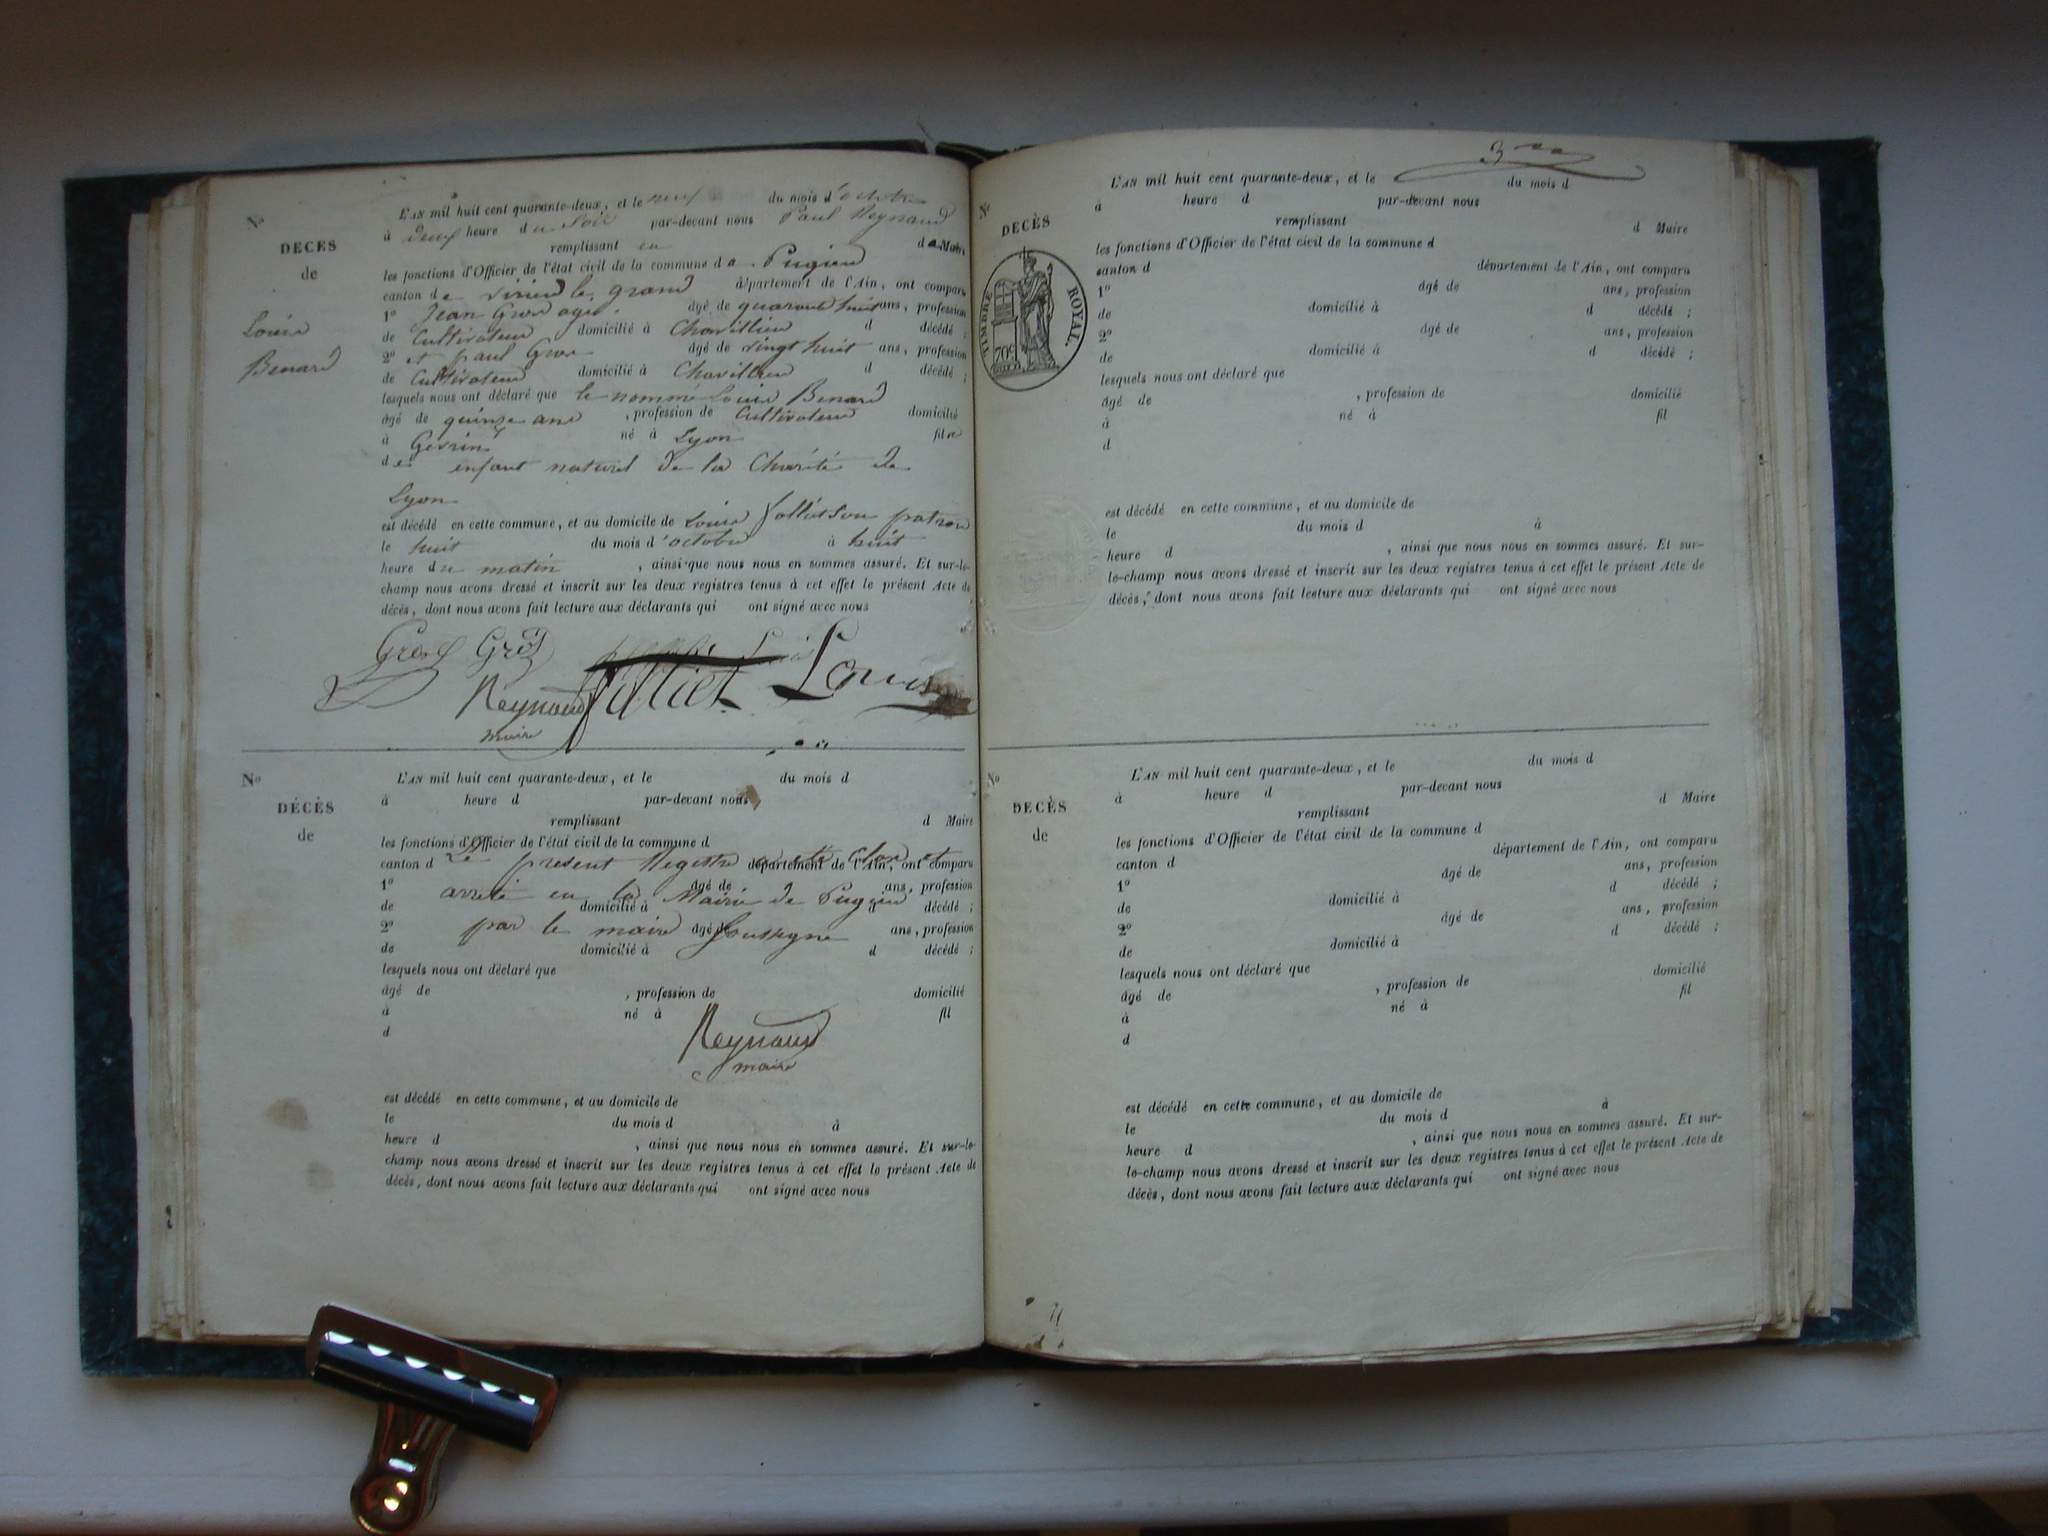 N°
DECÈS
de
Louis
Benard
L'AN mil huit cent quarante-deux, et le neuf du mois d'octobre
à deux heure du soir par-devant nous Paul Reynaud
remplissant en d Maire
les fonctions d'Officier de l'état civil de la commune de Pugieu
canton de virieu le grand département de l'Ain, ont comparu
1° Jean Gros âgé de quarante huit ans, profession
de Cultivateur domicilié à Chavillieu d décédé ;
2° et paul Gros âgé de vingt huit ans, profession
de Cultivateur domicilié à Chavillieu d décédé ;
lesquels nous ont déclaré que le nommé Louis Benard
âgé de quinze ans , profession de Cultivateur domicilié
à né à Lyon fils
de enfant naturel de la Charité de
Lyon
est décédé en cette commune, et au domicile de Louis patron
le huit du mois d'octobre à huit
heure du matin , ainsi que nous nous en sommes assuré. Et sur-le-
champ nous avons dressé et inscrit sur les deux registres tenus à cet effet le présent Acte de
décès, dont nous avons fait lecture aux déclarants qui ont signé avec nous
Gros Gros
Reynaud Louis
maire
N°
DÉCÈS
de
L'AN mil huit cent quarante-deux, et le du mois d
à heure d par-devant nous
remplissant d Maire
les fonctions d'Officier de l'état civil de la commune d
canton d département de l'Ain, ont comparu
Le présent Registre a été clos et
1° âgé de ans, profession
arrêté en la Mairie de Pugieu
de domicilié à d décédé ;
2° âgé de ans, profession
par le maire Soussigné
de domicilié à d décédé ;
lesquels nous ont déclaré que
âgé de , profession de domicilié
à né à fil
d
Reynaud
maire
est décédé en cette commune, et au domicile de
le du mois d à
heure d , ainsi que nous nous en sommes assuré. Et sur-le-
champ nous avons dressé et inscrit sur les deux registres tenus à cet effet le présent Acte de
décès, dont nous avons fait lecture aux déclarants qui ont signé avec nous
N°
DECÈS
TIMBRE ROYAL.
70c
L'AN mil huit cent quarante-deux, et le du mois d
à heure d par-devant nous
remplissant d Maire
les fonctions d'Officier de l'état civil de la commune d
canton d département de l'Ain, ont comparu
1° âgé de ans, profession
de domicilié à d décédé ;
2° âgé de ans, profession
de domicilié à d décédé ;
lesquels nous ont déclaré que
âgé de , profession de domicilié
à né à fil
d
est décédé en cette commune, et au domicile de
le du mois d à
heure d , ainsi que nous nous en sommes assuré. Et sur-
le-champ nous avons dressé et inscrit sur les deux registres tenus à cet effet le présent Acte de
décès, dont nous avons fait lecture aux déclarants qui ont signé avec nous
N°
DECÈS
de
L'AN mil huit cent quarante-deux, et le du mois d
à heure d par-devant nous
remplissant d Maire
les fonctions d'Officier de l'état civil de la commune d
canton d département de l'Ain, ont comparu
1° âgé de ans, profession
de domicilié à d décédé ;
2° âgé de ans, profession
de domicilié à d décédé ;
lesquels nous ont déclaré que
âgé de , profession de domicilié
à né à fil
d
est décédé en cette commune, et au domicile de
le du mois d à
heure d , ainsi que nous nous en sommes assuré. Et sur-
le-champ nous avons dressé et inscrit sur les deux registres tenus à cet effet le présent Acte de
décès, dont nous avons fait lecture aux déclarants qui ont signé avec nous